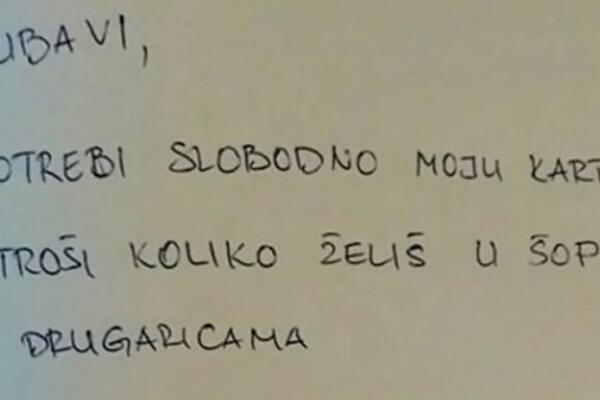 UBAVI,
OTREBI SLOBODNO MOJU KART
TROŠI KOLIKO ŽELIŠ U ŠOP
DRUGARICAMA